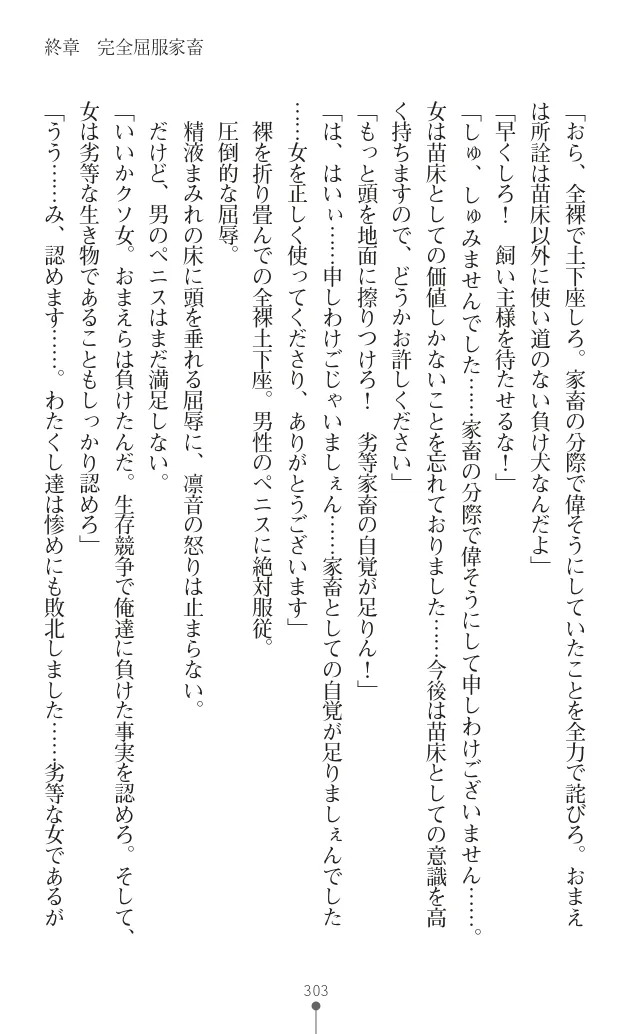 終章　完全屈服家畜
「おら、全裸で土下座しろ。家畜の分際で偉そうにしていたことを全力で詫びろ。おまえ
は所詮は苗床以外に使い道のない負け犬なんだよ」
「早くしろ！　飼い主様を待たせるな！」
「しゅ、しゅみませんでした……家畜の分際で偉そうにして申しわけございません……。
女は苗床としての価値しかないことを忘れておりました……今後は苗床としての意識を高
く持ちますので、どうかお許しください」
「もっと頭を地面に擦りつけろ！　劣等家畜の自覚が足りん！」
「は、はいぃ……申しわけごじゃいましぇん……家畜としての自覚が足りましぇんでした
……女を正しく使ってくださり、ありがとうございます」
裸を折り畳んでの全裸土下座。男性のペニスに絶対服従。
圧倒的な屈辱。
精液まみれの床に頭を垂れる屈辱に、凛音の怒りは止まらない。
だけど、男のペニスはまだ満足しない。
「いいかクソ女。おまえらは負けたんだ。生存競争で俺達に負けた事実を認めろ。そして、
女は劣等な生き物であることもしっかり認めろ」
「うう……み、認めます……。わたくし達は惨めにも敗北しました……劣等な女であるが
303